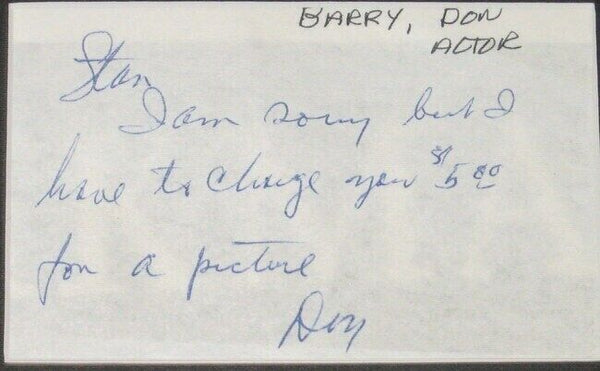 BARRY, DON
ACTOR
Stan
I am sorry but I
have to charge you $5.00
for a picture
Don